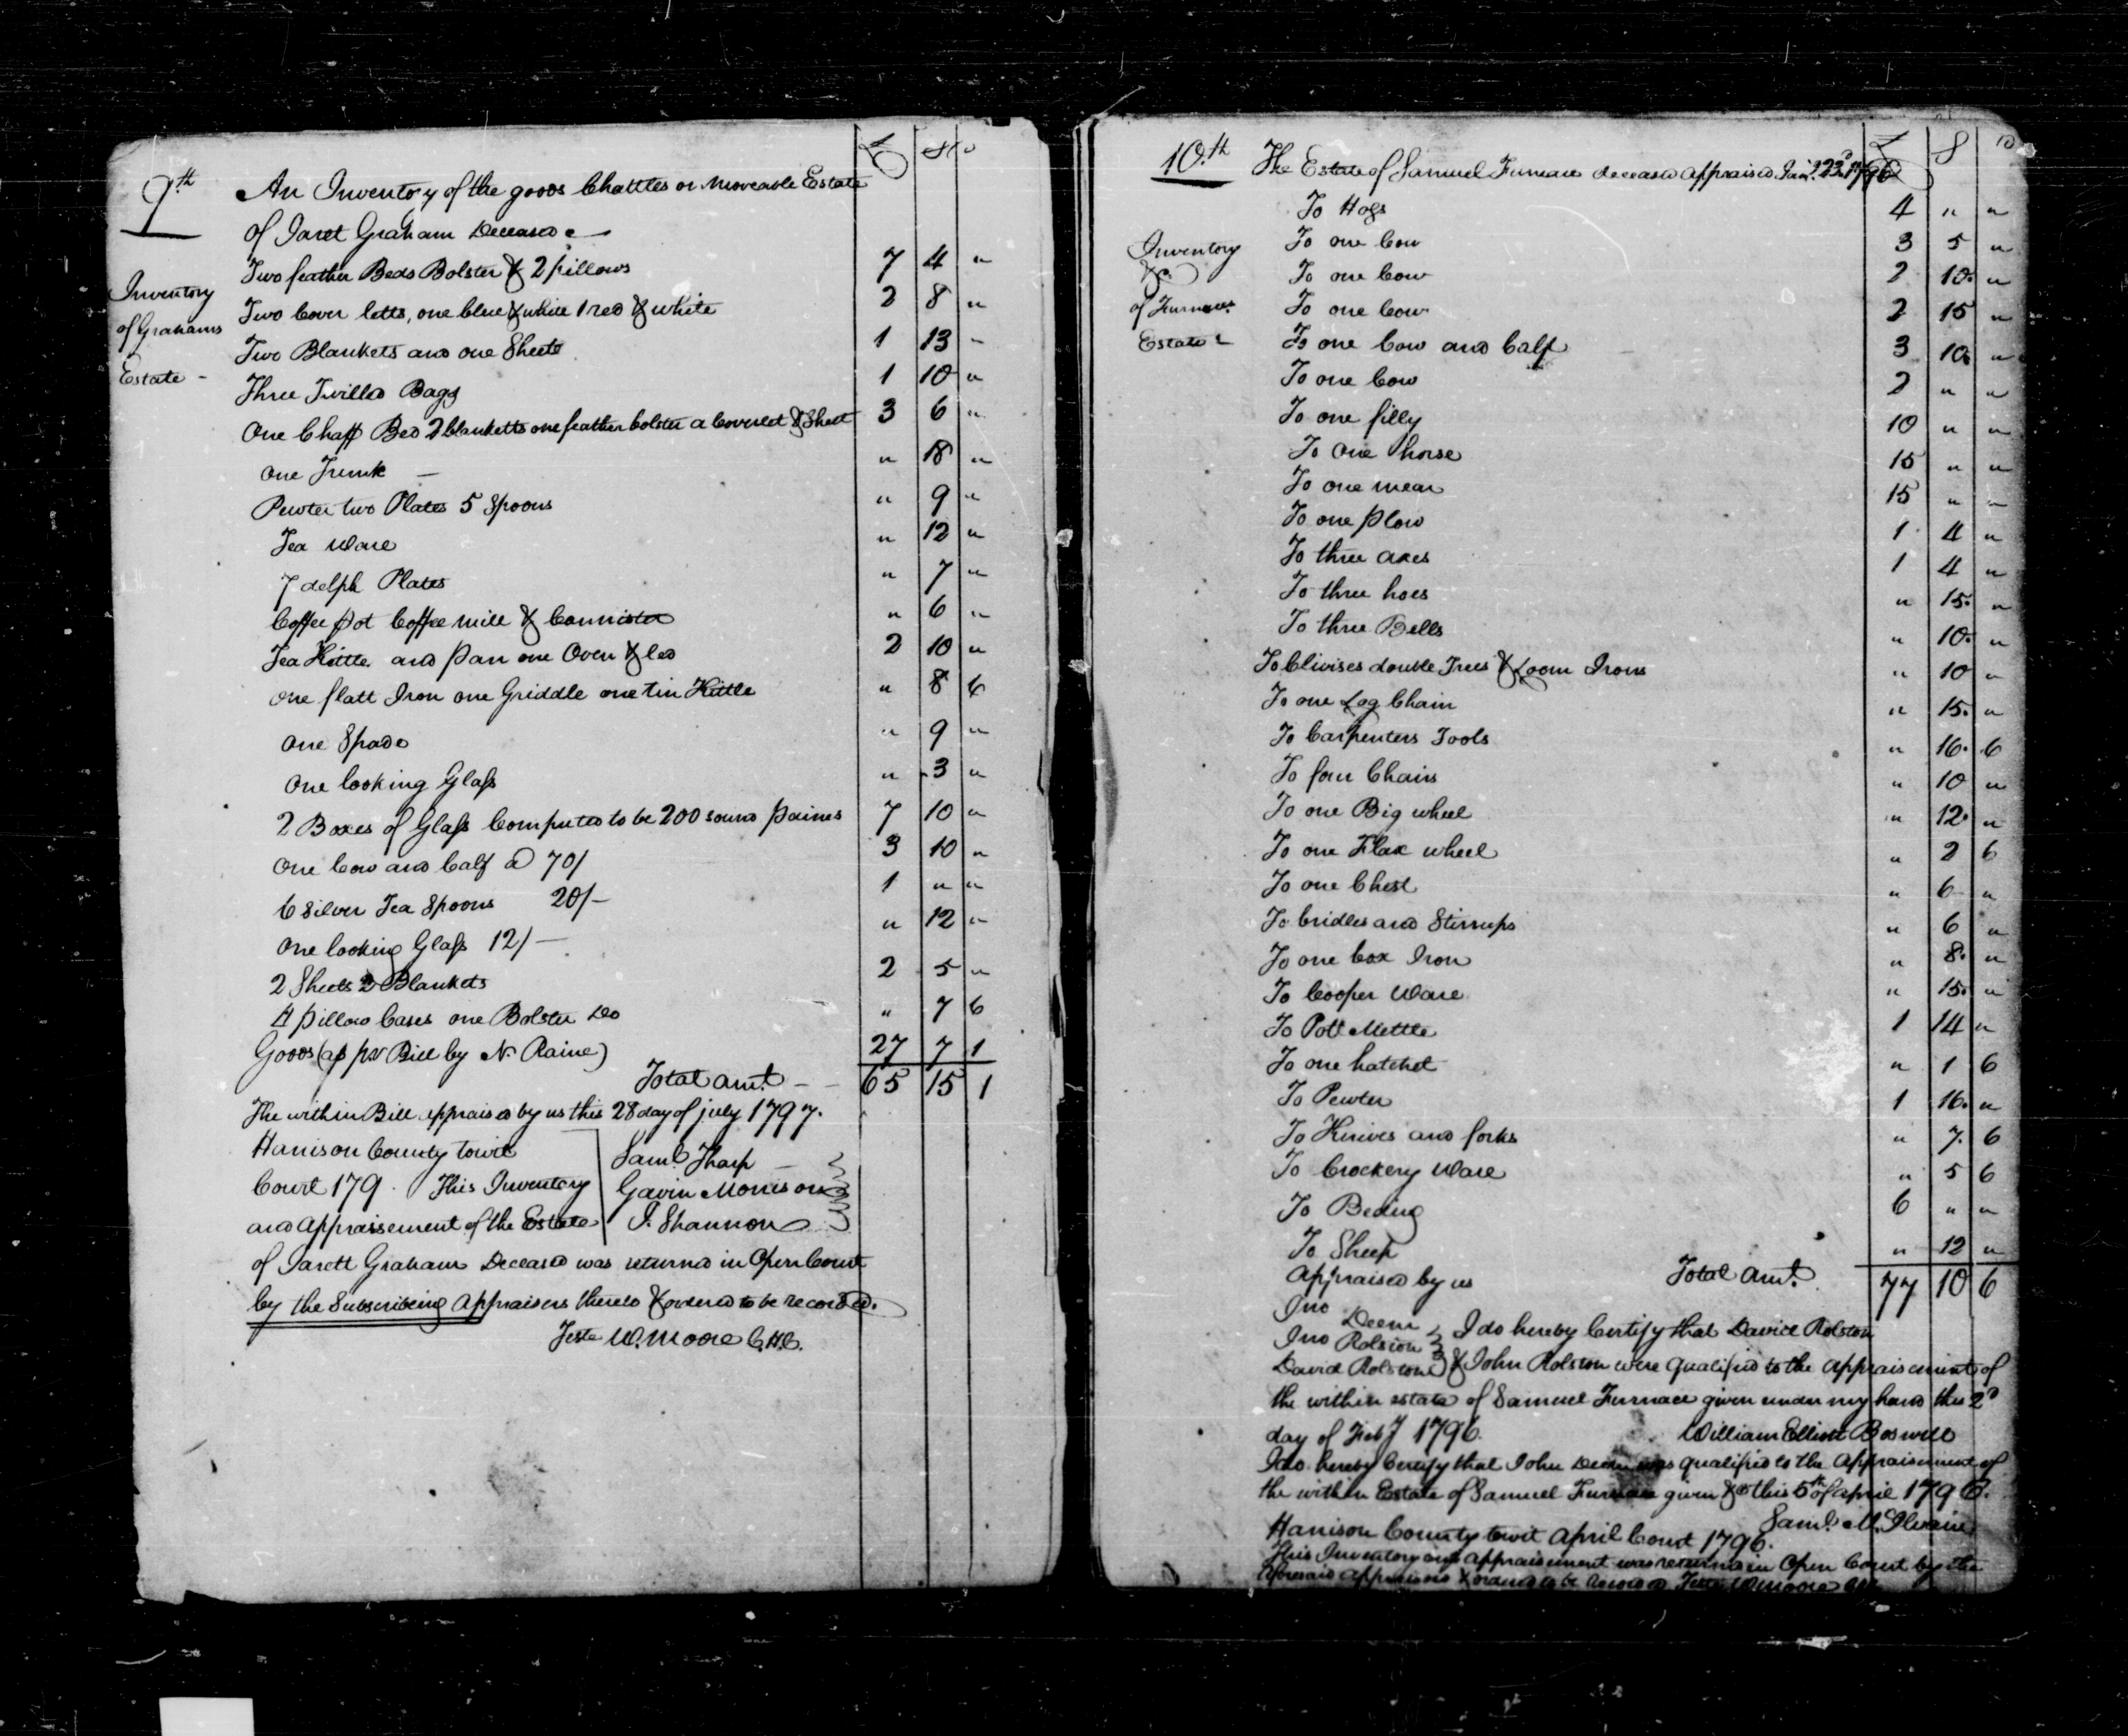 9th
An Inventory of the goods Chattles or moveable Estate
of Jaret Graham Deceased
Inventory
of Grahams
Estate -
£ S D
Two feather Beds Bolster & 2 pillows 7 4 "
Two Cover letts, one blue & while 1 red & white 2 8 "
Two Blankets and one Sheete 1 13 "
Three Twilled Bags 1 10 "
One Chaff Bed 2 blanketts one feather bolster a Coverled & Sheet 3 6 "
One Trunk — " 18 "
Pewter two Plates 5 Spoons " 9 "
Tea Ware " 12 "
7 delph Plates " 7 "
Coffee pot Coffee mill & Cannister " 6 "
Tea Kittle and pan one Oven & led 2 10 "
one flatt Iron one Griddle one tin Kittle " 8 6
One Spade " 9 "
One looking Glass " 3 "
2 Boxes of Glass Computed to be 200 sound paines 7 10 "
One Cow and Calf a 70/ 3 10 "
6 Silver Tea Spoons 20/- 1 " "
One looking Glass 12/- " 12 "
2 Sheets 2 Blankets 2 5 "
4 pillow Cases one Bolster Do " 7 6
Goods (as pr Bill by N. Raine) 27 7 1
Total amt. - - 65 15 1
The within Bill appraised by us this 28 day of july 1797.
Harrison County towit
Court 179 . This Inventory
and Appraisement of the Estate
Saml. Tharp
Gavin Morrison
J. Shannon
of Jarett Graham Deceased was returned in Open Court
by the Subscribeing Appraisers thereto & ordered to be recorded.
Teste W. Moore C.H.C.
10.th
The Estate of Samuel Furnace deceased appraised Jany. 22d. 1796
£ S D
Inventory
&c
of Furnaces
Estate
To Hogs 4 " "
To one Cow 3 5 "
To one Cow 2 10 "
To one Cow 2 15 "
To one Cow and Calf 3 10 "
To one Cow 2 " "
To one filly 10 " "
To one horse 15 " "
To one mear 15 " "
To one plow 1 4 "
To three axes 1 4 "
To three hoes " 15 "
To three Bells " 10 "
To Clivises double Trees & Loom Irons " 10 "
To one Log Chain " 15 "
To Carpenters Tools " 16 6
To four Chairs " 10 "
To one Big wheel " 12 "
To one Flax wheel " 2 6
To one Chest " 6 "
To bridles and Stirrups " 6 "
To one box Iron " 8 "
To Cooper Ware " 15 "
To Pott Mettle 1 14 "
To one hatchet " 1 6
To Pewter 1 16 "
To Knives and forks " 7 6
To Crockery Ware " 5 6
To Beding 6 " "
To Sheep " 12 "
Appraised by us Total amt. 77 10 6
Jno Deem
Jno Rolston
David Rolston
I do hereby Certify that David Rolston
& John Rolston were qualified to the appraisement of
the within estate of Samuel Furnace given under my hand this 2d
day of Feby 1796. William Elliott Boswell
I do hereby Certify that John Deem was qualified to the Appraisement of
the within Estate of Samuel Furnace given &c this 5th of april 1796.
Saml. M. Ilvain
Harrison County towit April Court 1796.
This Inventory and appraisement was returned in Open Court by the
aforesaid appraisers & ordered to be recorded Teste W Moore